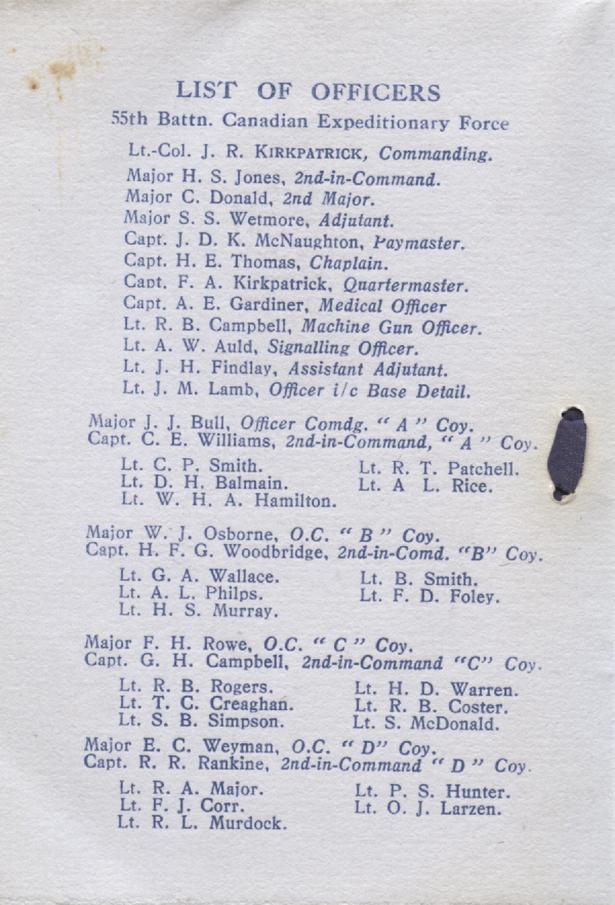 LIST OF OFFICERS
55th Battn. Canadian Expeditionary Force
Lt.-Col. J. R. KIRKPATRICK, Commanding.
Major H. S. Jones, 2nd-in-Command.
Major C. Donald, 2nd Major.
Major S. S. Wetmore, Adjutant.
Capt. J. D. K. McNaughton, Paymaster.
Capt. H. E. Thomas, Chaplain.
Capt. F. A. Kirkpatrick, Quartermaster.
Capt. A. E. Gardiner, Medical Officer
Lt. R. B. Campbell, Machine Gun Officer.
Lt. A. W. Auld, Signalling Officer.
Lt. J. H. Findlay, Assistant Adjutant.
Lt. J. M. Lamb, Officer i/c Base Detail.
Major J. J. Bull, Officer Comdg. " A " Coy.
Capt. C. E. Williams, 2nd-in-Command, " A " Coy.
Lt. C. P. Smith. Lt. R. T. Patchell.
Lt. D. H. Balmain. Lt. A L. Rice.
Lt. W. H. A. Hamilton.
Major W. J. Osborne, O.C. " B " Coy.
Capt. H. F. G. Woodbridge, 2nd-in-Comd. "B" Coy.
Lt. G. A. Wallace. Lt. B. Smith.
Lt. A. L. Philps. Lt. F. D. Foley.
Lt. H. S. Murray.
Major F. H. Rowe, O.C. " C " Coy.
Capt. G. H. Campbell, 2nd-in-Command "C" Coy.
Lt. R. B. Rogers. Lt. H. D. Warren.
Lt. T. C. Creaghan. Lt. R. B. Coster.
Lt. S. B. Simpson. Lt. S. McDonald.
Major E. C. Weyman, O.C. " D" Coy.
Capt. R. R. Rankine, 2nd-in-Command " D " Coy.
Lt. R. A. Major. Lt. P. S. Hunter.
Lt. F. J. Corr. Lt. O. J. Larzen.
Lt. R. L. Murdock.